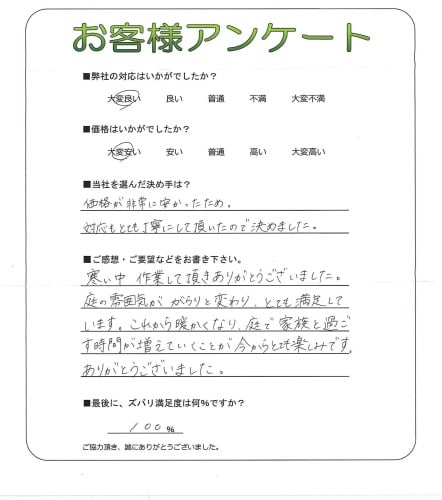 お客様アンケート
■弊社の対応はいかがでしたか?
大変良い 良い 普通 不満 大変不満
■価格はいかがでしたか?
大変安い 安い 普通 高い 大変高い
■当社を選んだ決め手は?
価格が非常に安かったため。
対応もとても丁寧にして頂いたので決めました。
■ご感想・ご要望などをお書き下さい。
寒い中 作業して頂きありがとうございました。
庭の雰囲気が がらりと変わり、とても満足して
います。これから暖かくなり、庭で家族と過ご
す時間が増えていくことが今からとても楽しみです。
ありがとうございました。
■最後に、ズバリ満足度は何%ですか?
100%
ご協力頂き、誠にありがとうございました。